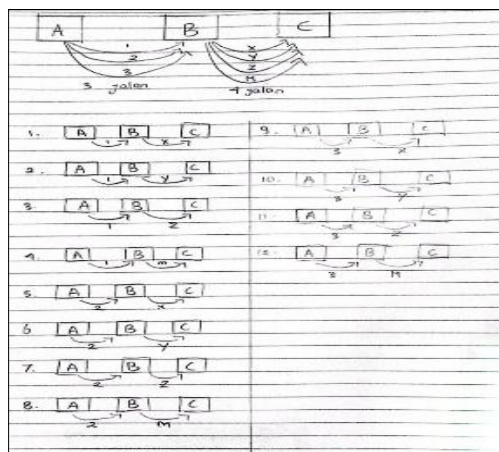 A B C
1 x
2 y
3 z
M
3 jalan 4 jalan
1. A B C
1 x
2. A B C
1 y
3 A B C
1 z
4. A B C
1 m
5 A B C
2 x
6 A B C
2 y
7. A B C
2 z
8. A B C
2 M
9. A B C
3 x
10. A B C
3 y
11. A B C
3 z
12. A B C
3 M